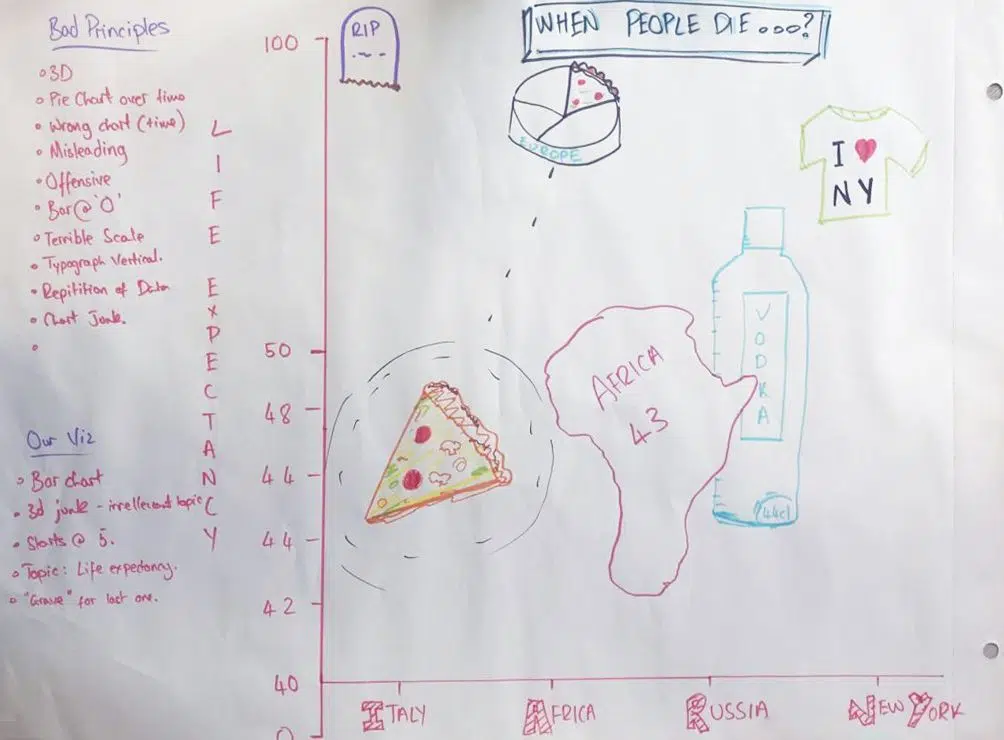 Bad Principles
3D
Pie Chart over time
Wrong chart (time)
Misleading
Offensive
Bar @ '0'
Terrible Scale
Typograph Vertical.
Repitition of Data
Chart Junk.
Our Viz
Bar chart
3d junk - irrellevant topic
Starts @ 5.
Topic: Life expectancy.
"Grave" for last one.
LIFE EXPECTANCY
100
50
48
44
44
42
40
0
RIP
WHEN PEOPLE DIE...?
EUROPE
I ♥
NY
AFRICA
43
VODKA
44cl
ITALY
AFRICA
RUSSIA
NEW YORK